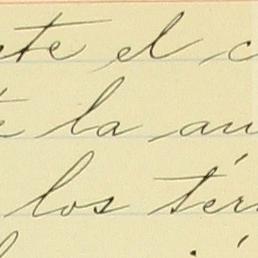 ete el c
la au
los tér